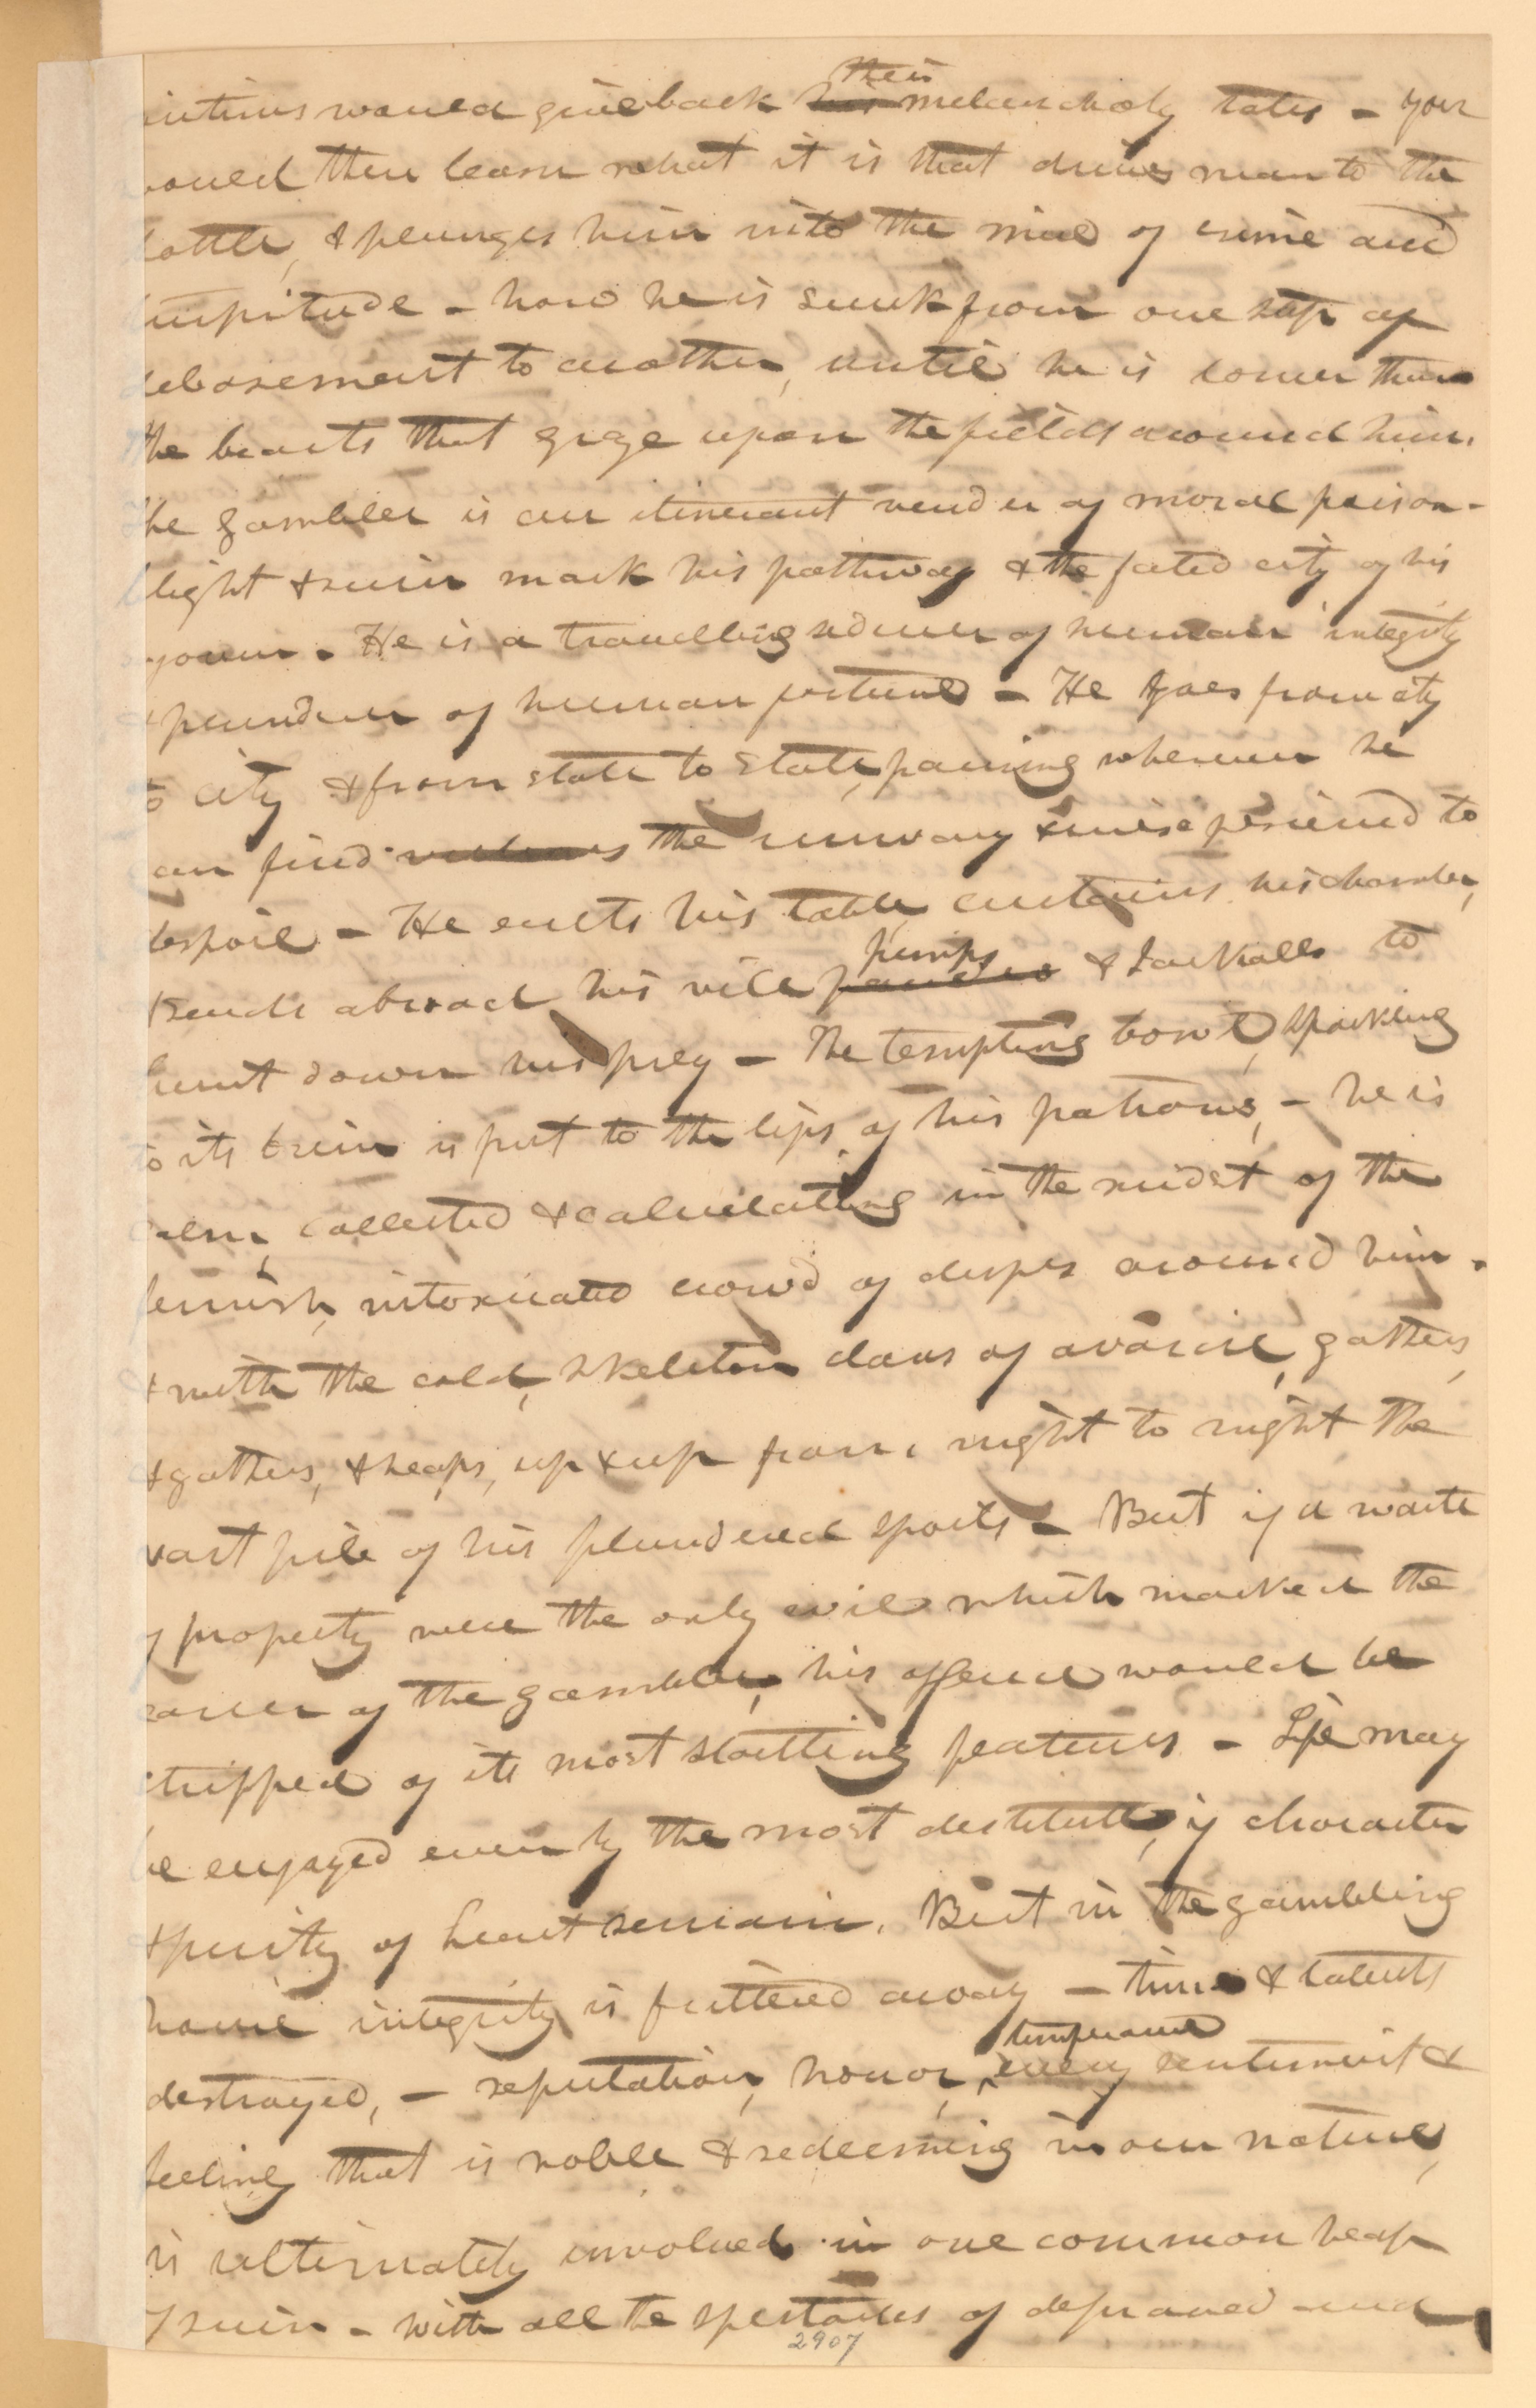 victims would give back ~~his~~ their melancholy tales - you
would then learn what it is that drives man to the
bottle, & plunges him into the mire of crime and
turpitude - how he is sunk from one step of
debasement to another, until he is lower than
the beasts that graze upon the fields around him.
The gambler is an itinerant vender of moral poison -
blight & ruin mark his pathway & the fated city of his
sojourn. He is a travelling seducer of human integrity
& plunderer of human fortune - He goes from city
to city & from state to state, pausing wherever he
can find the unwary & inexperienced to
despoil - He erects his table, curtains his chamber,
& sends abroad his vile ~~panders~~ pimps & Jackalls to
hunt down his prey - The tempting bowl, sparkling
to its brim is put to the lips of his patrons, - he is
calm, collected & calculating in the midst of the
feverish, intoxicated crowd of dupes around him -
& with the cold, skeleton claws of avarice, gathers,
& gathers, & heaps, up & up from night to night the
vast pile of his plundered spoils - But if a waste
of property were the only evil which marked the
career of the gambler, his offence would be
stripped of its most startling features - Life may
be enjoyed even by the most destitute, if character
& purity of heart remain. But in the gambling
house integrity is frittered away - time & talents
destroyed, - reputation, honor, temperance every sentiment &
feeling that is noble & redeeming in our nature,
is ultimately involved in one common heap
of ruin - with all the spectacles of depraved and
2907